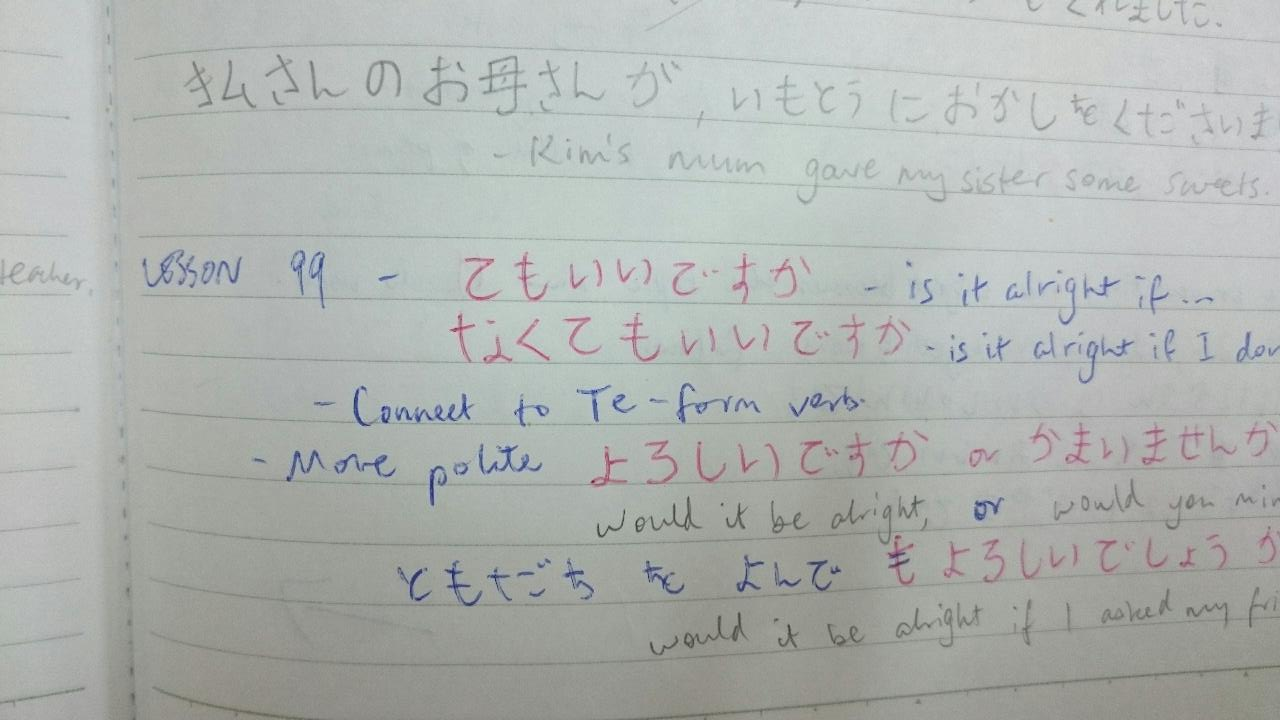 くれました.
キムさんのお母さんが, いもとうにおかしをくださいま
- Kim's mum gave my sister some sweets.
teacher.
LESSON 99 - てもいいですか - is it alright if...
なくてもいいですか - is it alright if I don
- Connect to Te-form verb.
- More polite よろしいですか or かまいませんか
would it be alright, or would you min
ともだち を よんで もよろしいでしょうか
would it be alright if I asked my fri